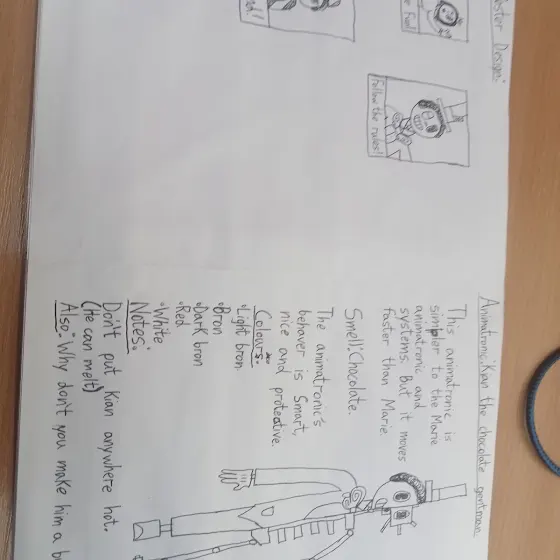 oster Design:
Fun!
Follow the rules!
Animatronic: Kian the chocolate gentman
This animatronic is
simpler to the Marie
animatronic and
systems. But it moves
faster than Marie.
Smell: Chocolate.
The animatronic's
behaver is Smart,
nice and protective.
Colours:
•Light bron
•Bron
•Dark bron
•Red
•White
Notes:
Don't put Kian anywhere hot.
(He can melt)
Also: Why don't you make him a b